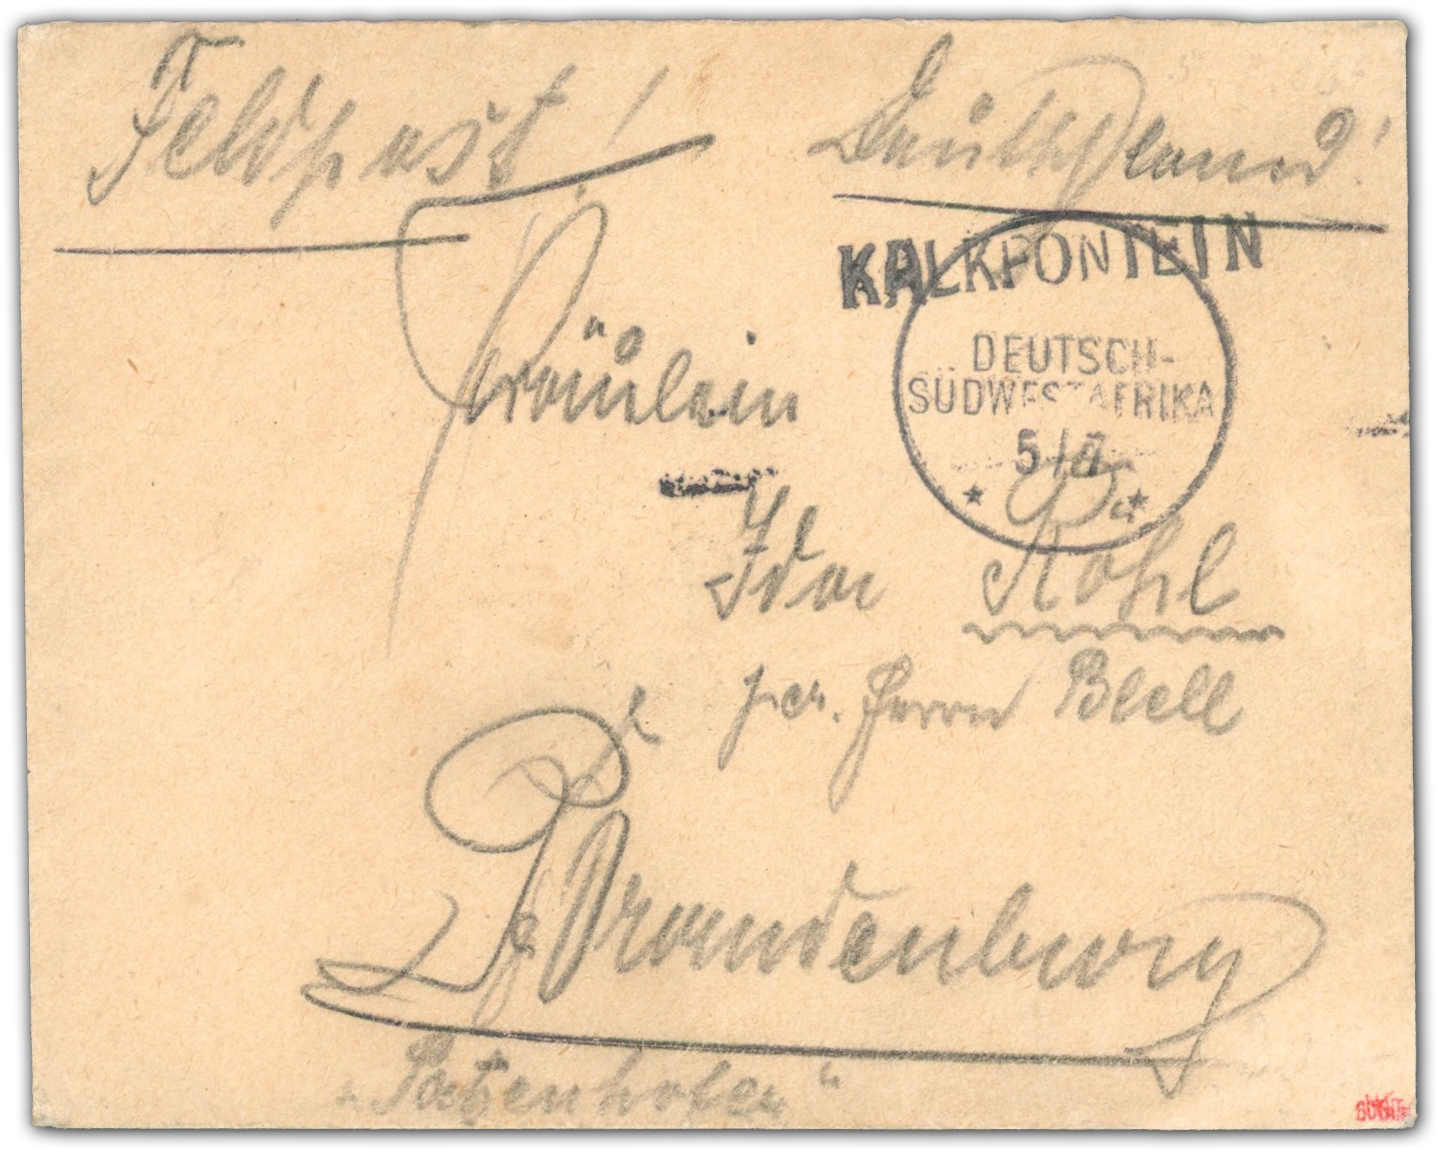 Feldpost! Deutschland!
KALKFONTEIN
DEUTSCH-
SÜDWESTAFRIKA
5/7
Fräulein
Ida Kohl
per. Herrn Blell
Brandenburg
"Patzenhofer"